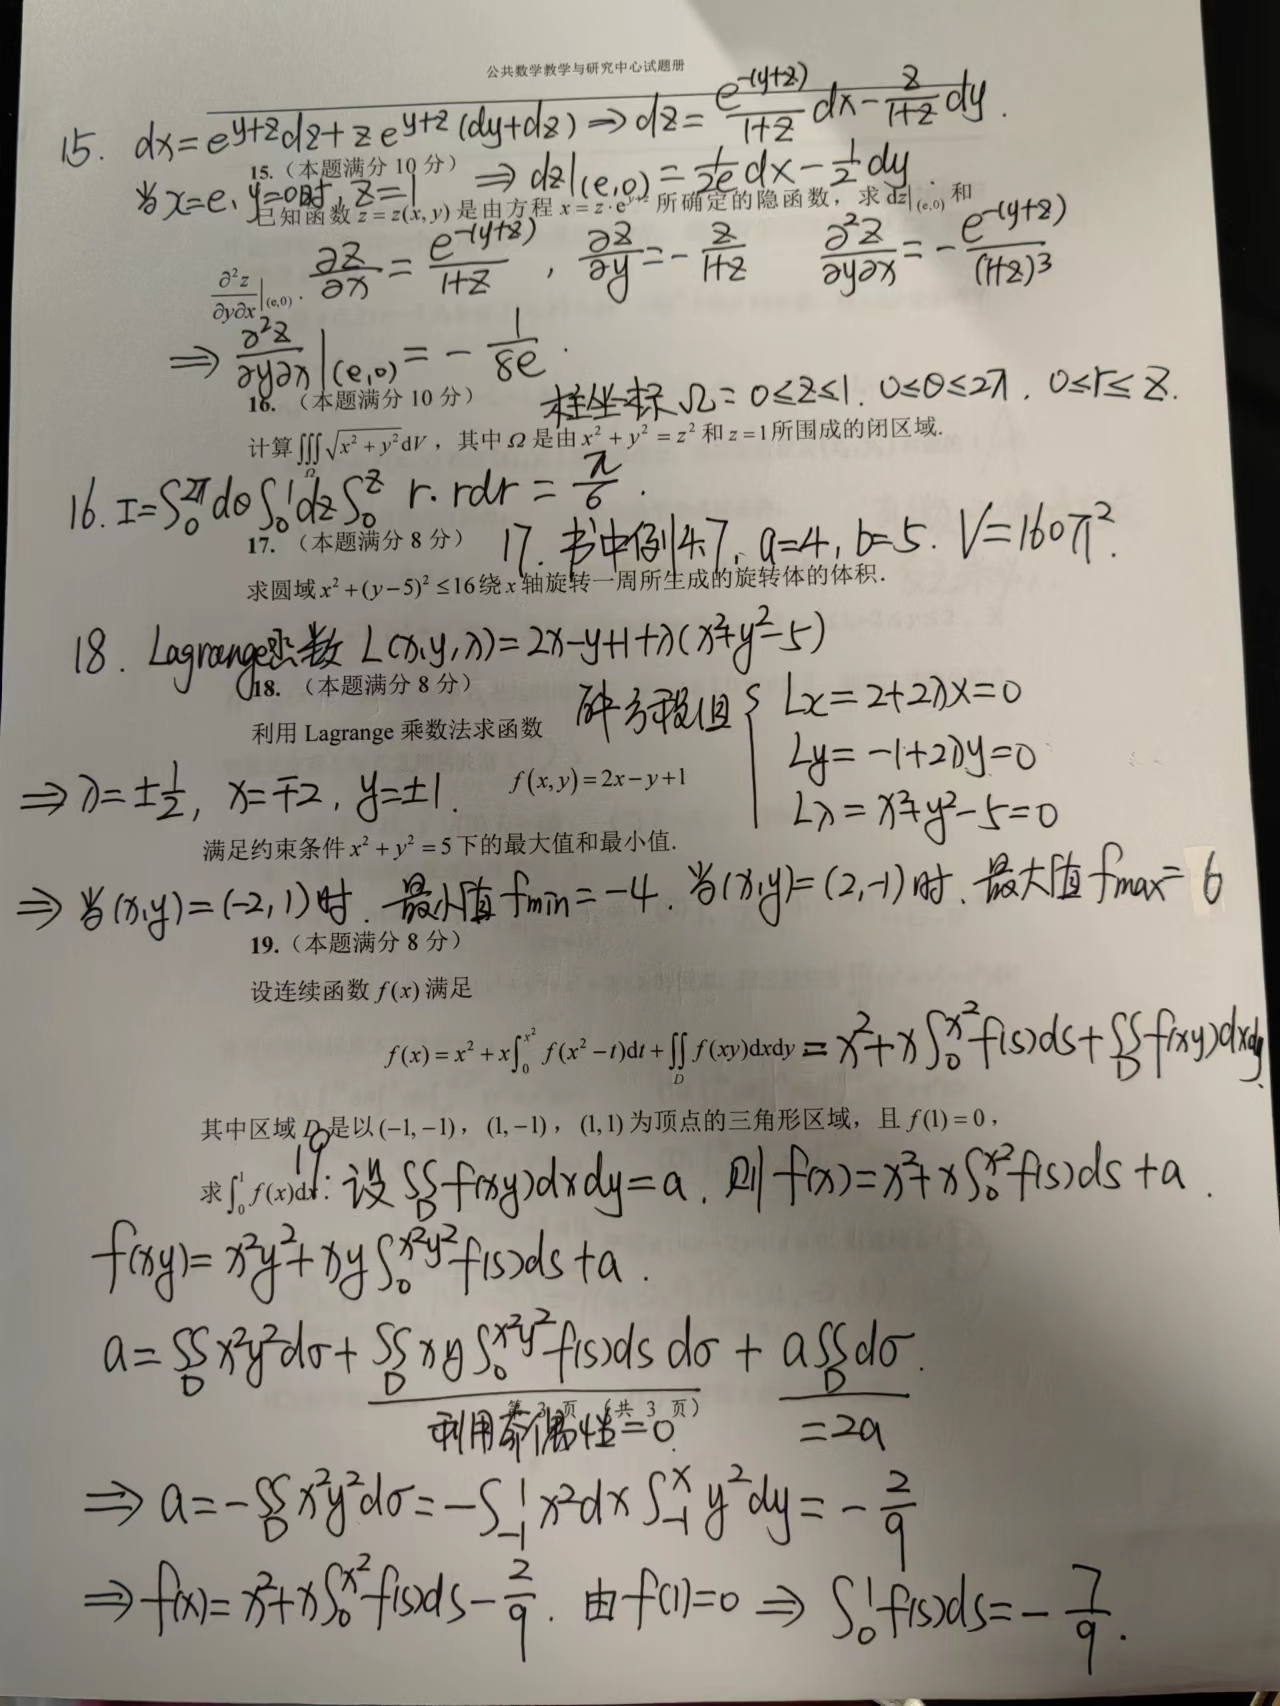 公共数学教学与研究中心试题册
15. dx = e^{y+z}dz + z e^{y+z}(dy+dz) ⇒ dz = \frac{e^{-(y+z)}}{1+z} dx - \frac{z}{1+z} dy.
15.（本题满分 10 分）
当x=e, y=0时, z=1 ⇒ dz|_{(e,0)} = \frac{1}{2e}dx - \frac{1}{2}dy.
已知函数 z = z(x, y) 是由方程 x = z·e^{y+z} 所确定的隐函数，求 dz|_{(e,0)} 和
\frac{∂²z}{∂y∂x}|_{(e,0)}.
\frac{∂z}{∂x} = \frac{e^{-(y+z)}}{1+z}, \frac{∂z}{∂y} = -\frac{z}{1+z} \frac{∂²z}{∂y∂x} = -\frac{e^{-(y+z)}}{(1+z)^3}
⇒ \frac{∂²z}{∂y∂x}|_{(e,0)} = -\frac{1}{8e}.
16.（本题满分 10 分）
柱坐标 Ω = 0≤z≤1. 0≤θ≤2π, 0≤r≤z.
计算 ∭_Ω \sqrt{x²+y²}dV，其中 Ω 是由 x² + y² = z² 和 z = 1 所围成的闭区域.
16. I = ∫_0^{2π} dθ ∫_0^1 dz ∫_0^z r·rdr = \frac{π}{6}.
17.（本题满分 8 分）
17. 书中例4.7, a=4, b=5. V=160π².
求圆域 x² + (y−5)² ≤ 16 绕 x 轴旋转一周所生成的旋转体的体积.
18. Lagrange乘数 L(x,y,λ) = 2x-y+1+λ(x²+y²-5)
18.（本题满分 8 分）
利用 Lagrange 乘数法求函数
解方程组 { Lx = 2+2λx = 0
Ly = -1+2λy = 0
Lλ = x²+y²-5 = 0
f(x, y) = 2x − y + 1
⇒ λ = ±\frac{1}{2}, x = ∓2, y = ±1.
满足约束条件 x² + y² = 5 下的最大值和最小值.
⇒ 当(x,y) = (-2,1)时. 最小值 fmin = -4. 当(x,y) = (2,-1)时. 最大值 fmax = 6
19.（本题满分 8 分）
设连续函数 f(x) 满足
f(x) = x² + x∫_0^{x²} f(x² − t)dt + ∬_D f(xy)dxdy = x²+x∫_0^{x²} f(s)ds + ∬_D f(xy)dxdy.
其中区域 D 是以 (−1, −1)，(1, −1)，(1, 1) 为顶点的三角形区域，且 f(1) = 0，
求 ∫_0^1 f(x)dx.
19: 设 ∬_D f(xy)dxdy = a. 则 f(x) = x²+x∫_0^{x²} f(s)ds + a.
f(xy) = x²y²+xy∫_0^{x²y²} f(s)ds + a.
a = ∬_D x²y²dσ + ∬_D xy∫_0^{x²y²} f(s)ds dσ + a∬_D dσ.
第 3 页 （共 3 页）
利用奇偶性=0. =2a
⇒ a = -∬_D x²y²dσ = -∫_{-1}^1 x²dx ∫_{-1}^x y²dy = -\frac{2}{9}
⇒ f(x) = x²+x∫_0^{x²} f(s)ds - \frac{2}{9}. 由 f(1)=0 ⇒ ∫_0^1 f(s)ds = -\frac{7}{9}.